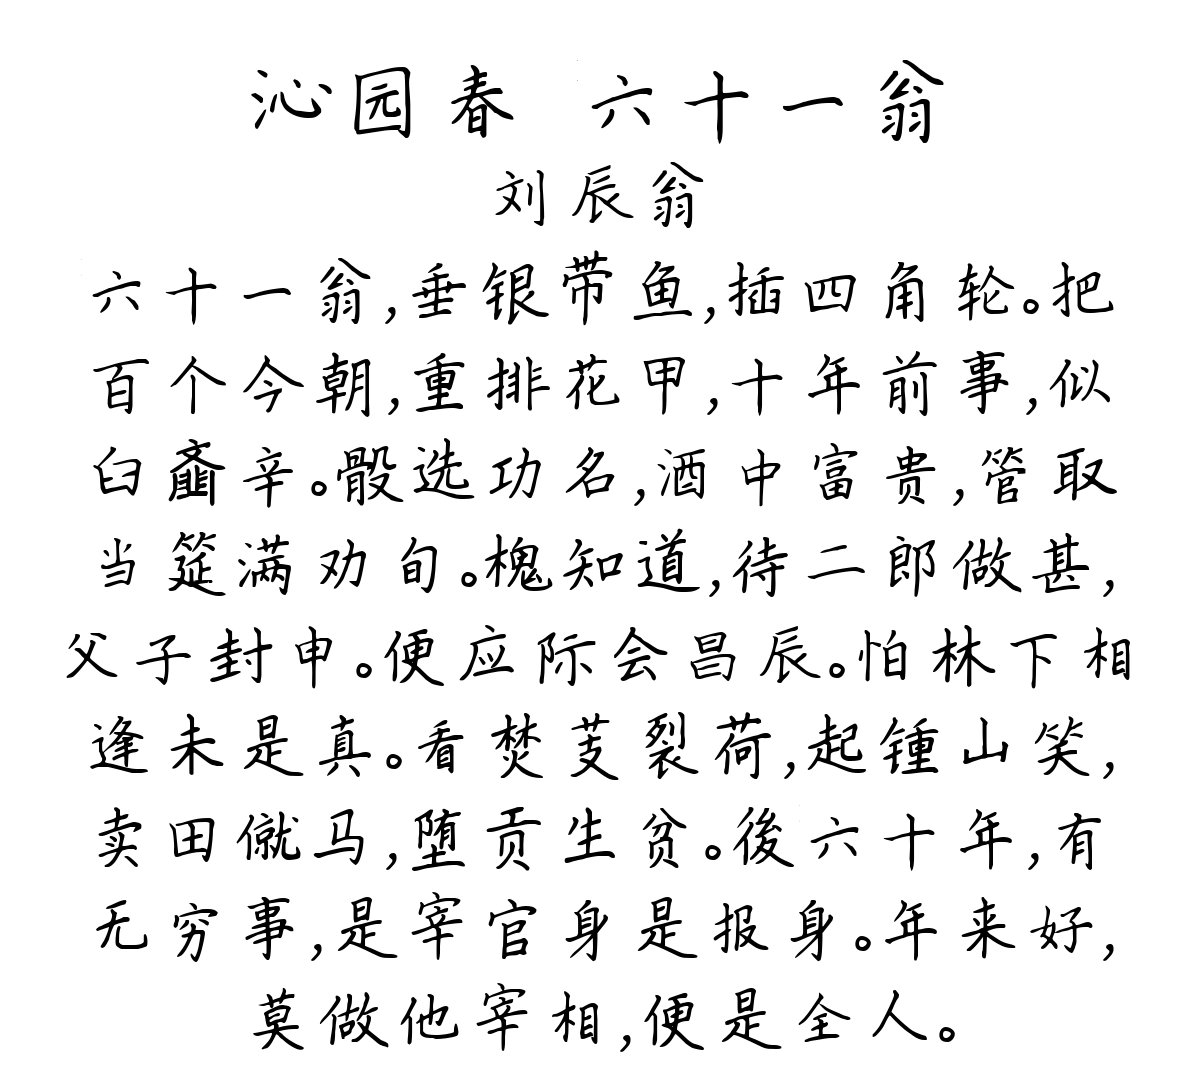 沁园春 六十一翁
刘辰翁
六十一翁,垂银带鱼,插四角轮。把
百个今朝,重排花甲,十年前事,似
臼齑辛。骰选功名,酒中富贵,管取
当筵满劝旬。槐知道,待二郎做甚,
父子封申。便应际会昌辰。怕林下相
逢未是真。看焚芰裂荷,起锺山笑,
卖田僦马,堕贡生贫。後六十年,有
无穷事,是宰官身是报身。年来好,
莫做他宰相,便是全人。